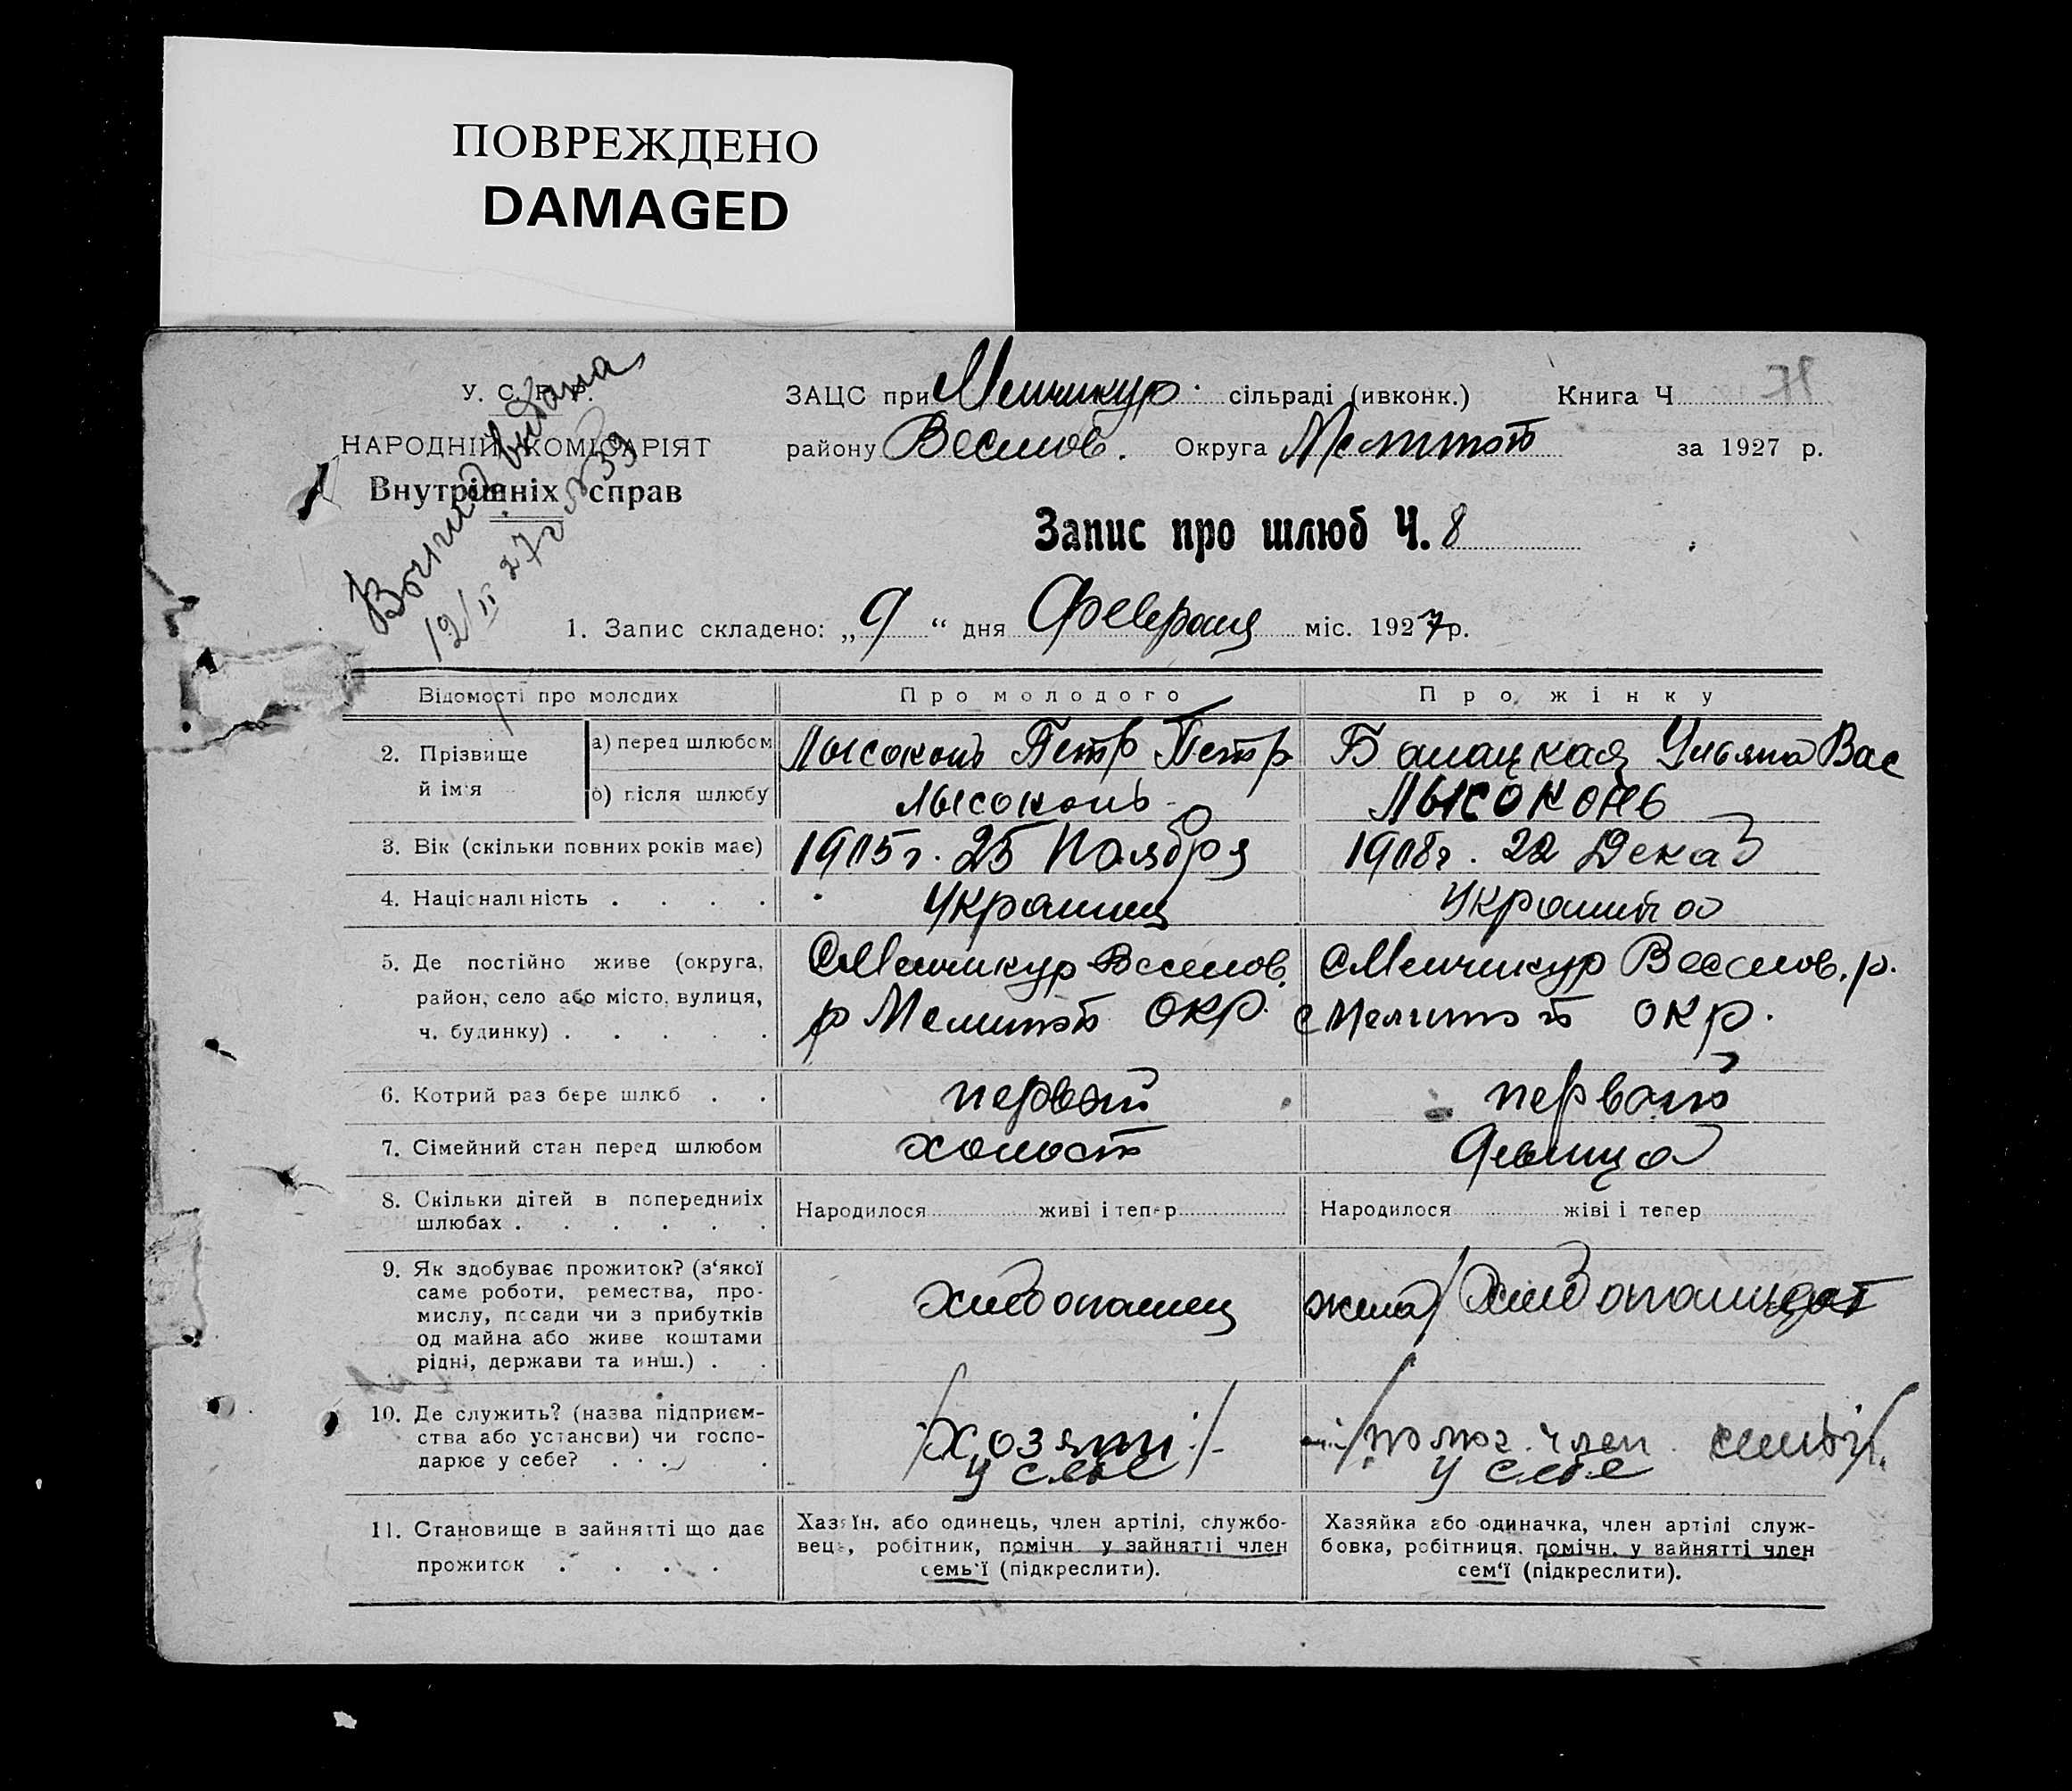 ПОВРЕЖДЕНО
DAMAGED
У. С. Р. Р.
НАРОДНІЙ КОМІСАРІЯТ
Внутрішніх справ
Выпись выдана
12/II 27 г № 39
ЗАЦС при Менчикур. сільраді (ивконк.) Книга Ч
району Веселов. Округа Мелитоп за 1927 р.
Запис про шлюб Ч. 8
1. Запис складено: „9“ дня Февраля міс. 1927 р.
Відомості про молодих
Про молодого
Про жінку
2. Прізвище й ім'я
а) перед шлюбом Лысоконь Петр Петр Балацкая Ульяна Вас
б) після шлюбу Лысоконь Лысоконь
3. Вік (скільки повних років має) 1905 г. 25 Ноября 1908 г. 22 Декаб
4. Національність . . . . Украинец Украинка
5. Де постійно живе (округа, район, село або місто, вулиця, ч. будинку) . . . . .
с Менчикур Веселов.
р Мелитоп окр.
с Менчикур Веселов. р.
Мелитоп окр.
6. Котрий раз бере шлюб . . первый первый
7. Сімейний стан перед шлюбом холост девица
8. Скільки дітей в попередніх шлюбах . . . . . .
Народилося живі і тепер
Народилося живі і тепер
9. Як здобуває прожиток? (з'якої
саме роботи, ремества, про-
мислу, посади чи з прибутків
од майна або живе коштами
рідні, держави та инш.) . .
хлебопашец
хлебопаш
10. Де служить? (назва підприєм-
ства або установи) чи госпо-
дарює у себе? . . . .
/хозяин/
у себе
/помог. член семьи/
у себе
11. Становище в зайнятті що дає
прожиток . . . .
Хазяїн, або одинець, член артілі, службо-
вець, робітник, помічн. у зайнятті член
семь'ї (підкреслити).
Хазяйка або одиначка, член артілі служ-
бовка, робітниця, помічн. у зайнятті член
сем'ї (підкреслити).